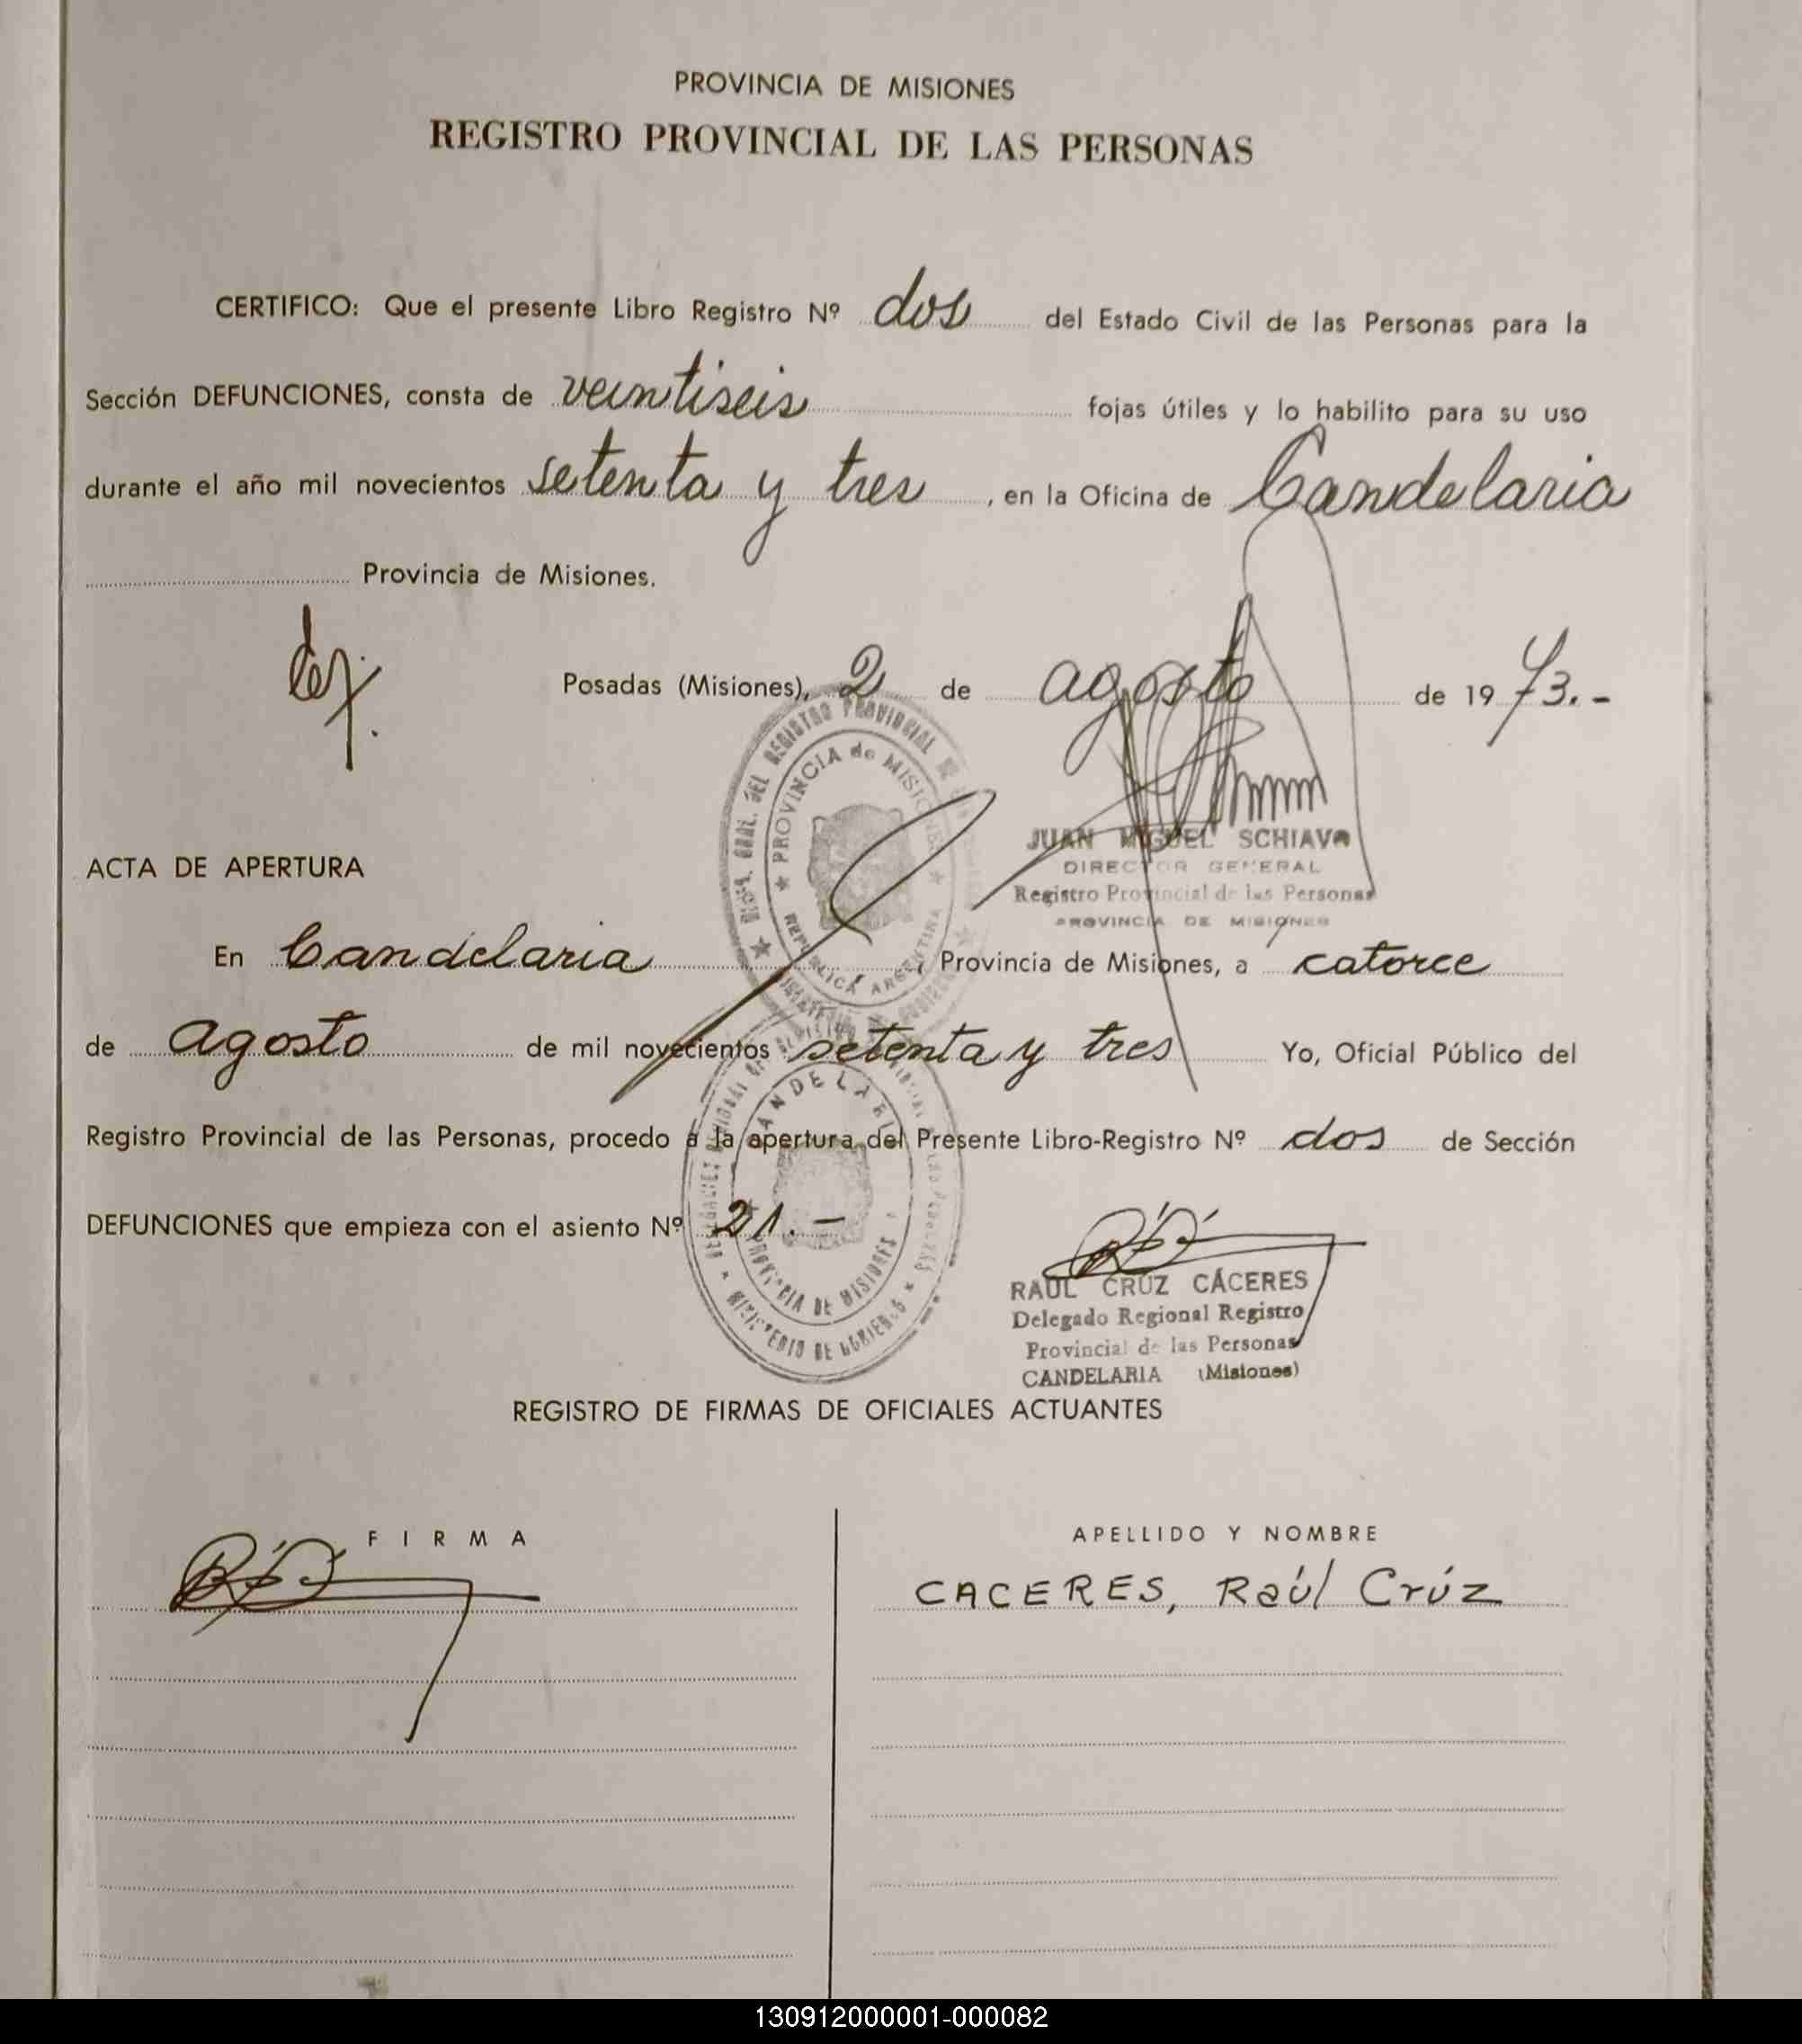 PROVINCIA DE MISIONES
REGISTRO PROVINCIAL DE LAS PERSONAS
CERTIFICO: Que el presente Libro Registro Nº dos del Estado Civil de las Personas para la
Sección DEFUNCIONES, consta de veintiseis fojas útiles y lo habilito para su uso
durante el año mil novecientos setenta y tres, en la Oficina de Candelaria
Provincia de Misiones.
Posadas (Misiones), 2 de agosto de 1973.-
DEL REGISTRO PROVINCIAL
PROVINCIA de MISIONES
REPUBLICA ARGENTINA
JUAN MIGUEL SCHIAVO
DIRECTOR GENERAL
Registro Provincial de las Personas
PROVINCIA DE MISIONES
ACTA DE APERTURA
En Candelaria, Provincia de Misiones, a catorce
de agosto de mil novecientos setenta y tres Yo, Oficial Público del
Registro Provincial de las Personas, procedo a la apertura del Presente Libro-Registro Nº dos de Sección
DEFUNCIONES que empieza con el asiento Nº 21.-
CANDELARIA
PROVINCIA DE MISIONES
MINISTERIO DE GOBIERNO
RAUL CRUZ CÁCERES
Delegado Regional Registro
Provincial de las Personas
CANDELARIA (Misiones)
REGISTRO DE FIRMAS DE OFICIALES ACTUANTES
FIRMA
APELLIDO Y NOMBRE
CACERES, Raúl Crúz
130912000001-000082